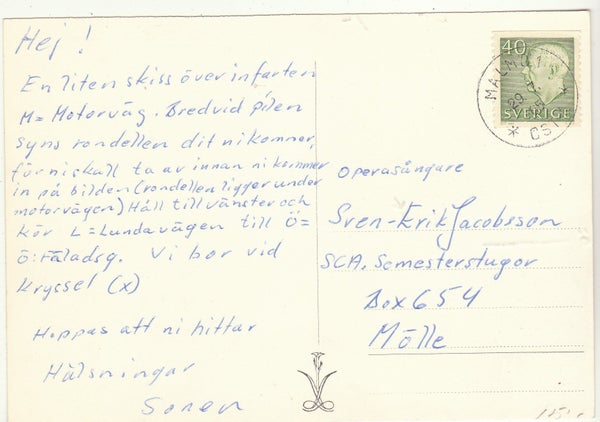 Hej!
En liten skiss över infarten
M= Motorväg. Bredvid pilen
syns rondellen dit ni kommer,
för ni skall ta av innan ni kommer
in på bilden (rondellen ligger under
motorvägen) Håll till vänster och
kör L=Lundavägen till Ö=
Ö:Fäladsg. Vi bor vid
krysset (x)
Hoppas att ni hittar
Hälsningar
Soren
40
SVERIGE
MALMÖ 1
29
* CST
Operasångare
Sven-Erik Jacobsson
SCA, Semesterstugor
Box 654
Mölle